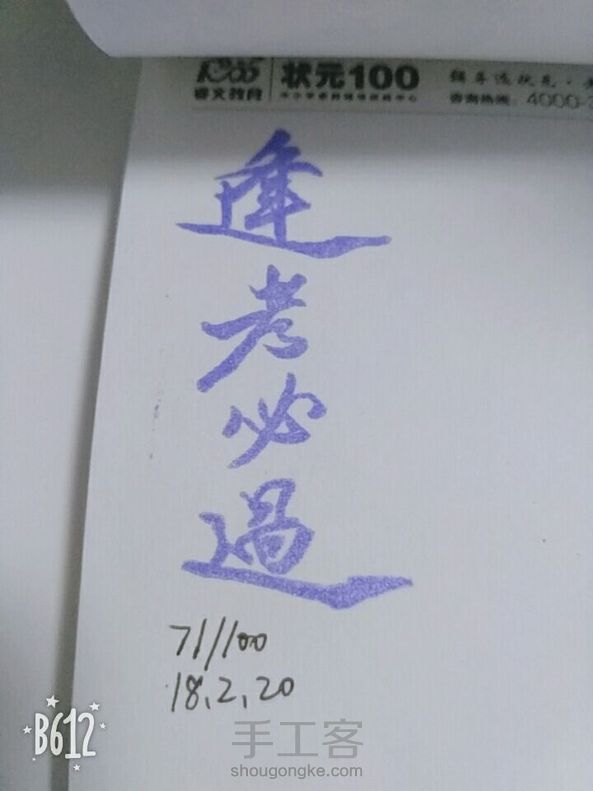 状元100
咨询热线：4000-3
逢
考
必
過
71/100
18.2.20
B612
手工客
shougongke.com